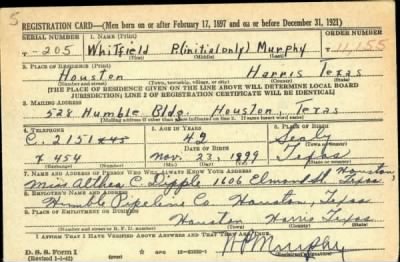 REGISTRATION CARD—(Men born on or after February 17, 1897 and on or before December 31, 1921)
SERIAL NUMBER 1. NAME (Print) ORDER NUMBER
T-205 Whitfield P(initial only) Murphy 11,155
(First) (Middle) (Last)
2. PLACE OF RESIDENCE (Print)
Houston Harris Texas
(Number and street) (Town, township, village, or city) (County) (State)
[THE PLACE OF RESIDENCE GIVEN ON THE LINE ABOVE WILL DETERMINE LOCAL BOARD
JURISDICTION; LINE 2 OF REGISTRATION CERTIFICATE WILL BE IDENTICAL]
3. MAILING ADDRESS
528 Humble Bldg. Houston, Texas
(Mailing address if other than place indicated on line 2. If same insert word same)
4. TELEPHONE 5. AGE IN YEARS 6. PLACE OF BIRTH
C. 2151 42 Sealy
DATE OF BIRTH (Town or county)
X 454 Nov. 23, 1899 Texas
(Exchange) (Number) (Mo.) (Day) (Yr.) (State or country)
7. NAME AND ADDRESS OF PERSON WHO WILL ALWAYS KNOW YOUR ADDRESS
Miss Althea C. Dipple 1606 Elmond St Houston, Texas
8. EMPLOYER'S NAME AND ADDRESS
Humble Pipeline Co Houston, Texas
9. PLACE OF EMPLOYMENT OR BUSINESS
Houston Harris Texas
(Number and street or R. F. D. number) (Town) (County) (State)
I AFFIRM THAT I HAVE VERIFIED ABOVE ANSWERS AND THAT THEY ARE TRUE.
D. S. S. Form 1
(Revised 1-1-42) GPO
WP Murphy
(Registrant's signature)